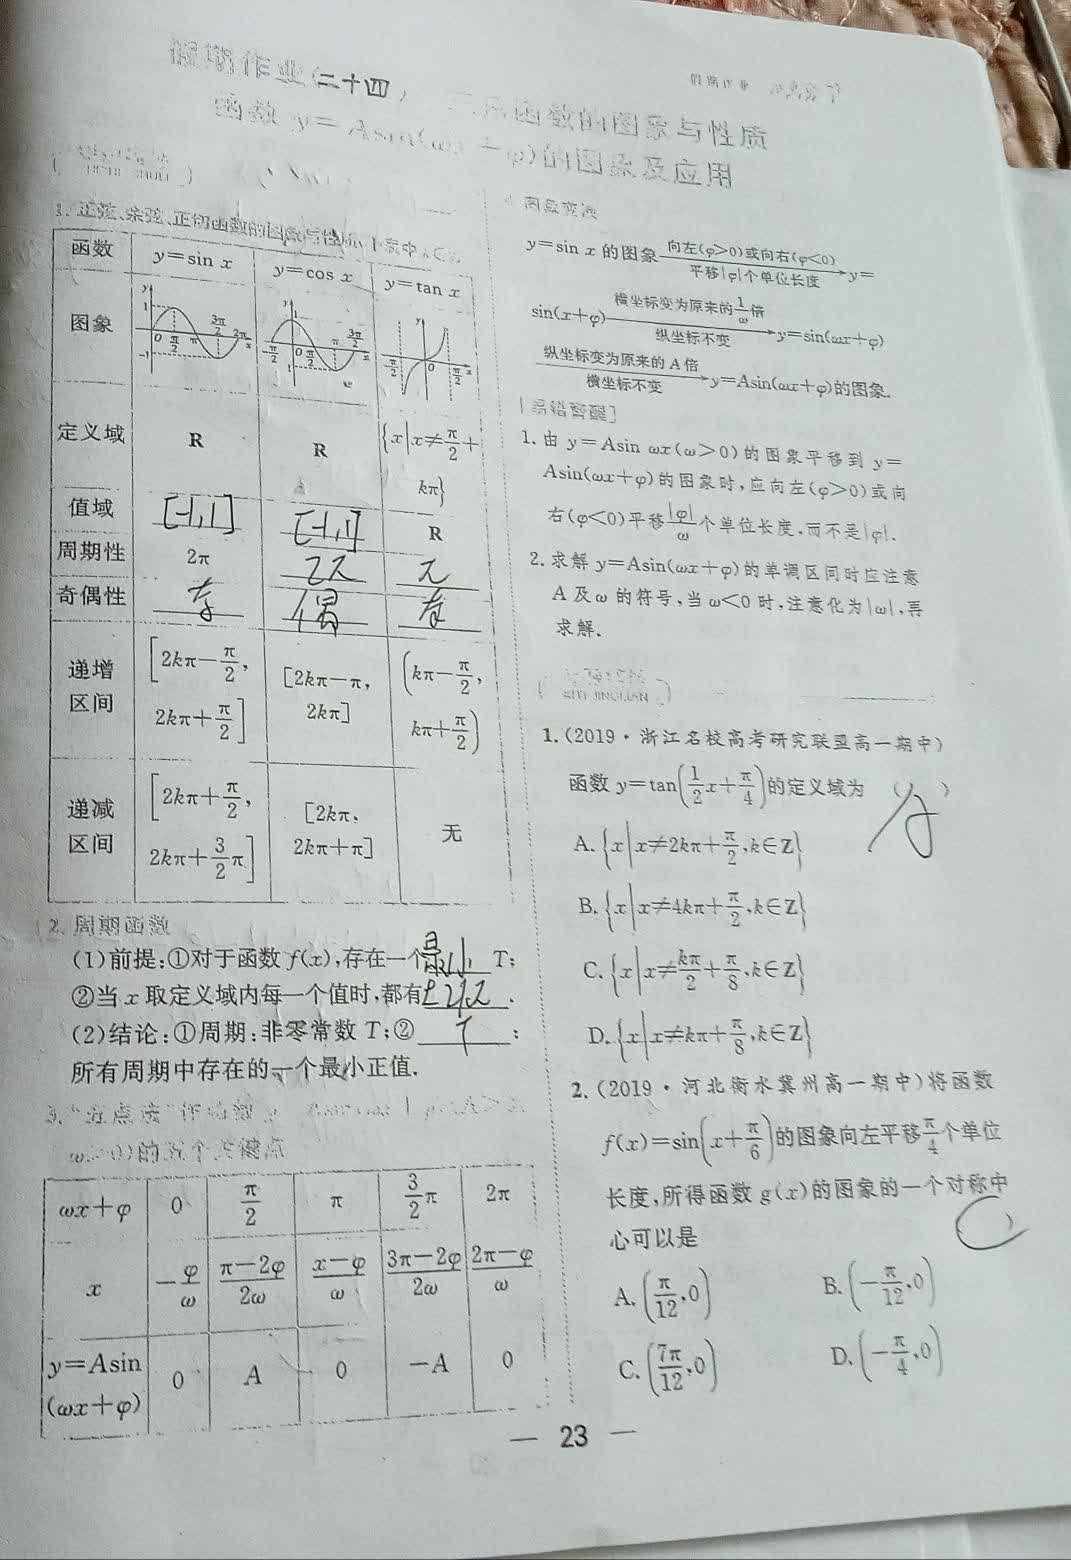 假期作业(二十四)
函数的图象与性质
函数 y=Asin(ωx+φ)的图象及应用
假期作业
1.正弦、余弦、正切函数的图象与性质
函数 y=sin x y=cos x y=tan x
图象
定义域 R R {x|x≠π/2+kπ}
值域 [-1,1] [-1,1] R
周期性 2π 2π π
奇偶性 奇 偶 奇
递增区间 [2kπ-π/2, 2kπ+π/2] [2kπ-π, 2kπ] (kπ-π/2, kπ+π/2)
递减区间 [2kπ+π/2, 2kπ+3/2π] [2kπ, 2kπ+π] 无
2.周期函数
(1)前提:①对于函数 f(x),存在一个 T;
②当 x 取定义域内每一个值时,都有 .
(2)结论:①周期:非零常数 T;② T :
所有周期中存在的一个最小正值.
3.“五点法”
ωx+φ 0 π/2 π 3/2π 2π
x -φ/ω (π-2φ)/2ω (x-φ)/ω (3π-2φ)/2ω (2π-φ)/ω
y=Asin(ωx+φ) 0 A 0 -A 0
图象变换
y=sin x 的图象 向左(φ>0)或向右(φ<0) 平移|φ|个单位长度 y=
sin(x+φ) 横坐标变为原来的1/ω倍 纵坐标不变 y=sin(ωx+φ)
纵坐标变为原来的 A 倍 横坐标不变 y=Asin(ωx+φ)的图象.
[易错警醒]
1.由 y=Asin ωx(ω>0)的图象平移到 y=
Asin(ωx+φ)的图象时,应向左(φ>0)或向
右(φ<0)平移|φ|/ω个单位长度,而不是|φ|.
2.求解 y=Asin(ωx+φ)的单调区间时应注意
A 及 ω 的符号,当 ω<0 时,注意化为|ω|,再
求解.
1.(2019·浙江名校高考研究联盟高一期中)
函数 y=tan(1/2x+π/4)的定义域为 ( )
A.{x|x≠2kπ+π/2,k∈Z}
B.{x|x≠4kπ+π/2,k∈Z}
C.{x|x≠kπ/2+π/8,k∈Z}
D.{x|x≠kπ+π/8,k∈Z}
2.(2019·河北衡水冀州高一期中)将函数
f(x)=sin(x+π/6)的图象向左平移π/4个单位
长度,所得函数 g(x)的图象的一个对称中
心可以是 ( C )
A.(π/12,0) B.(-π/12,0)
C.(7π/12,0) D.(-π/4,0)
— 23 —